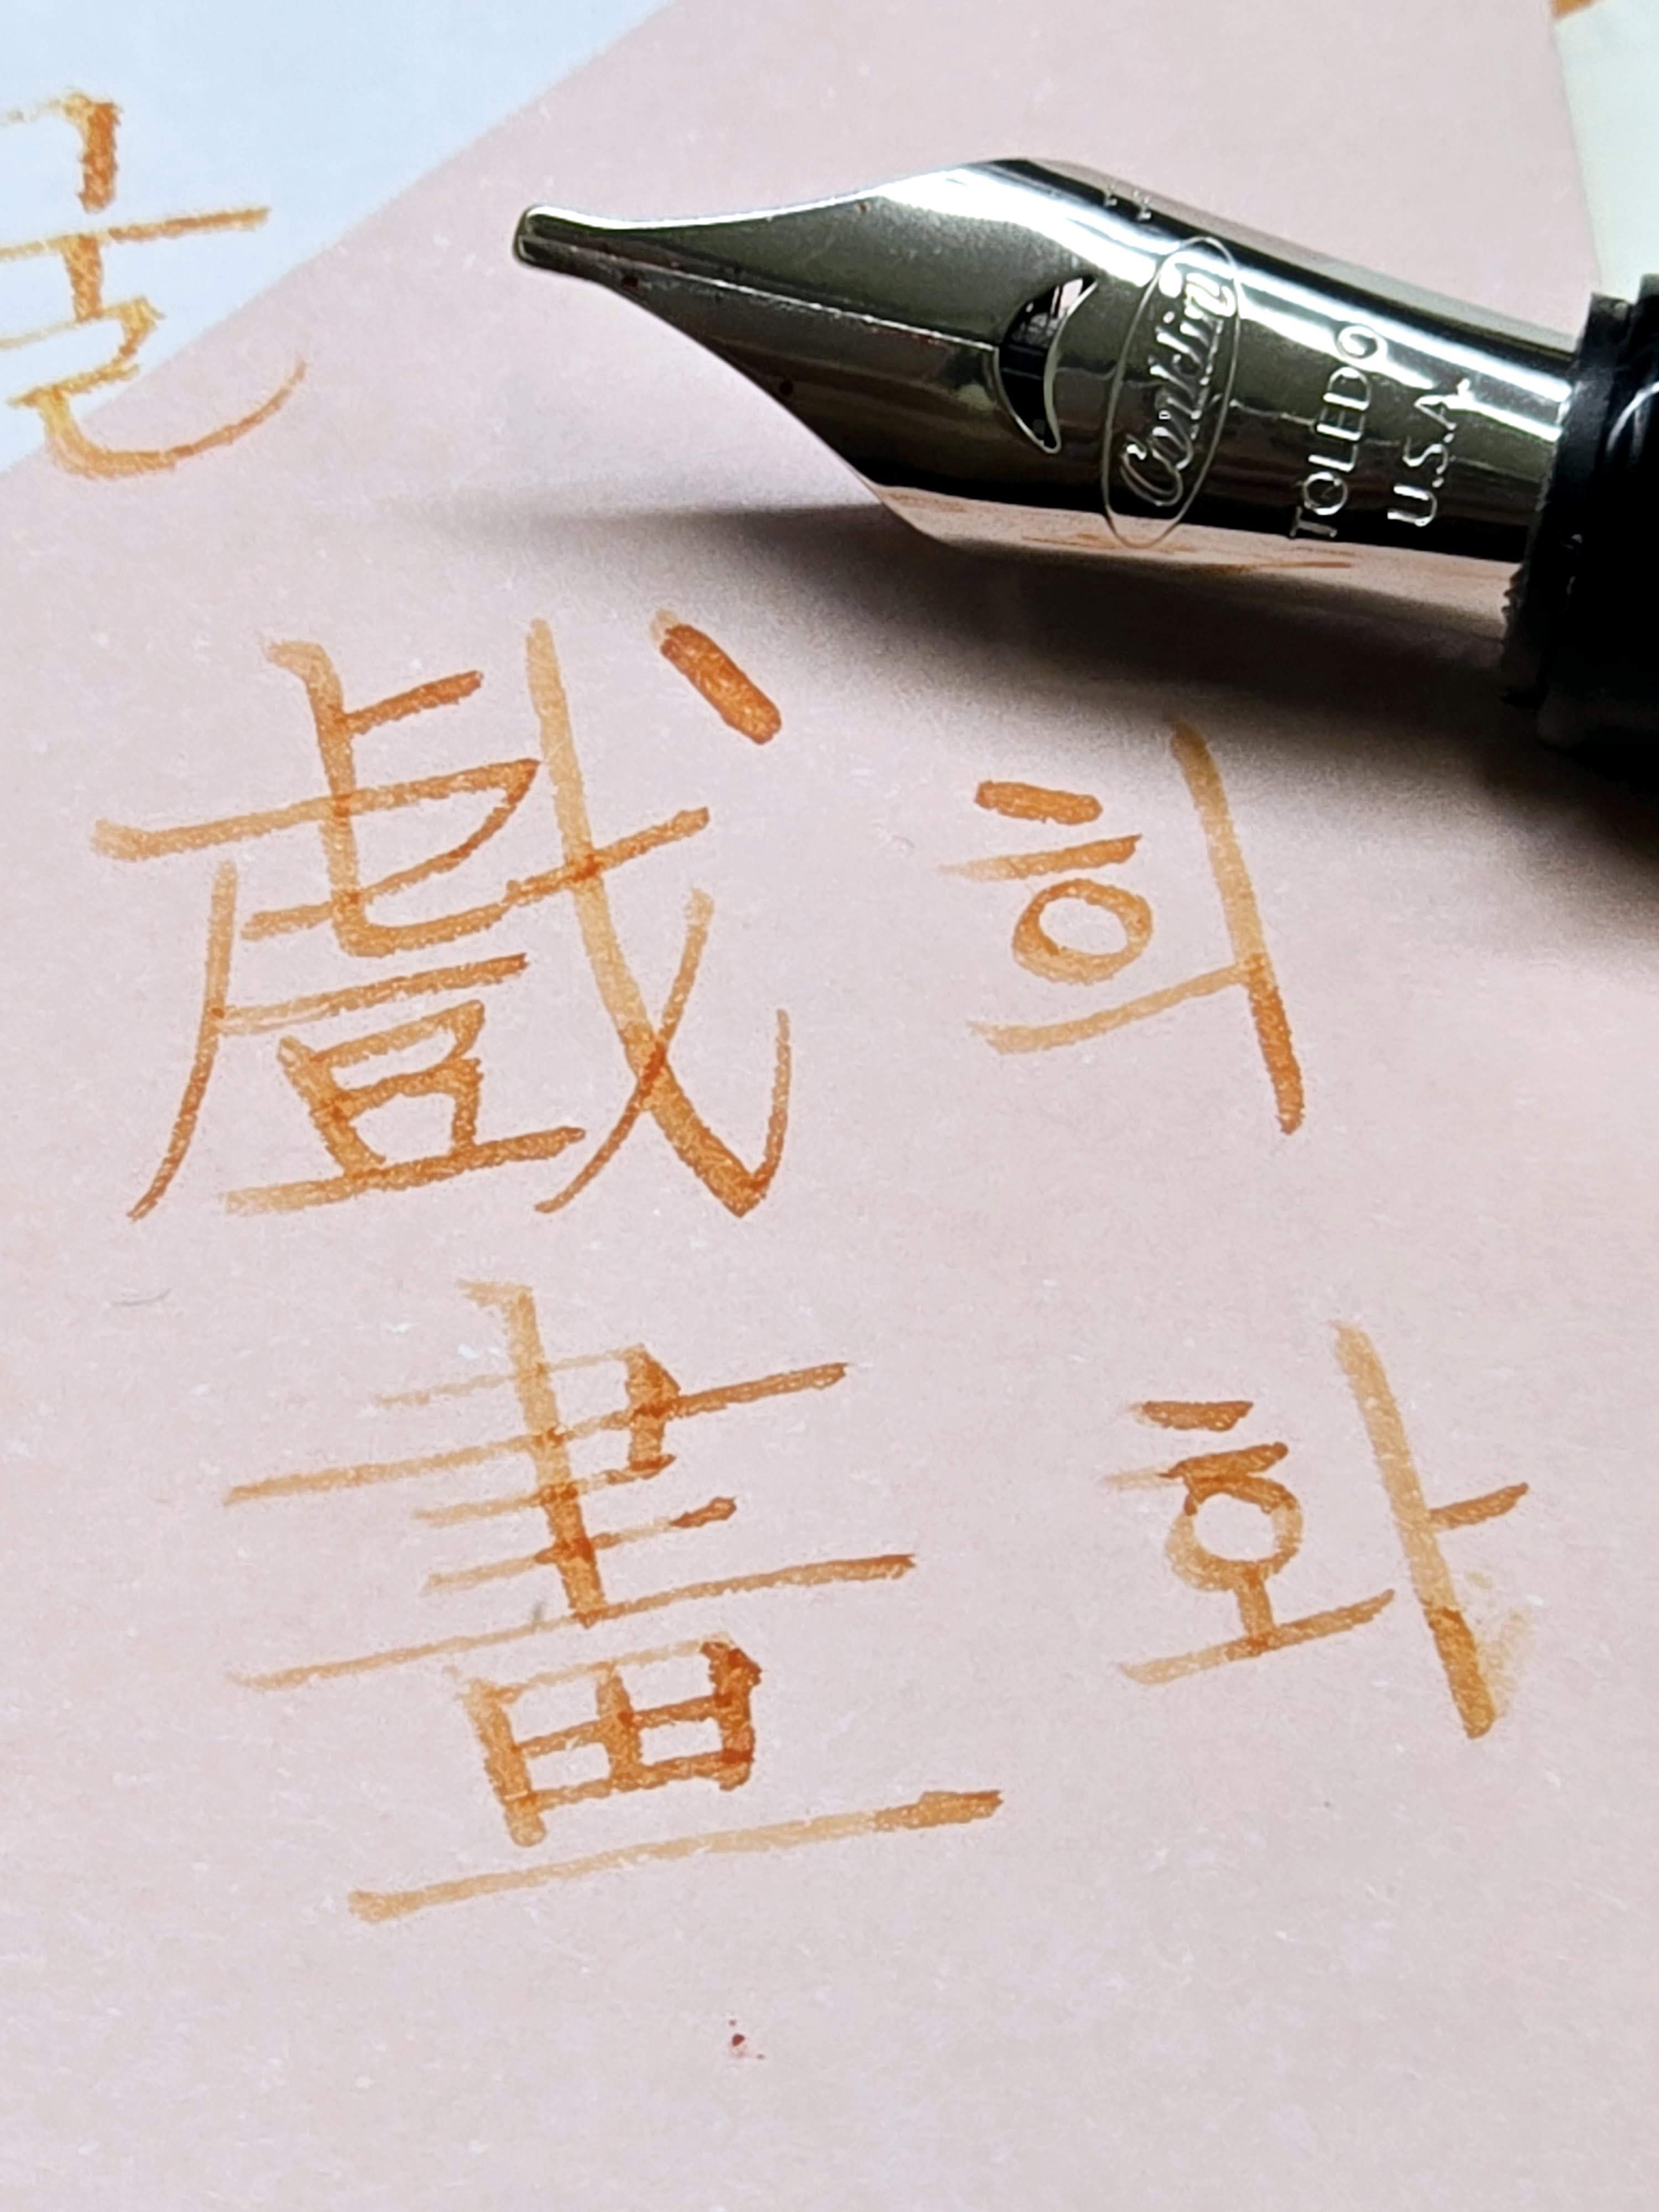 Conklin
TOLEDO
U.S.A.
戲 희
畫 화